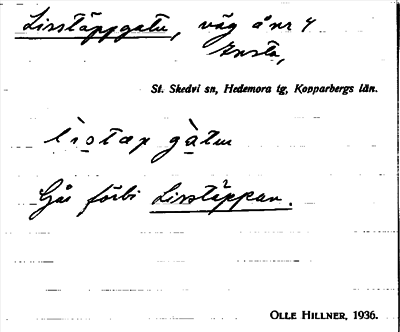 Lisstäppgatu, väg å nr 4
Ansta,
St. Skedvi sn, Hedemora tg, Kopparbergs län.
lìstæpgàtu
Går förbi Lisstäppan.
OLLE HILLNER, 1936.